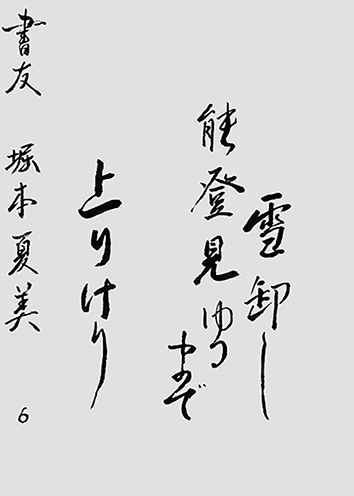 雪卸し
能登見ゆるまで
上りけり
書友 堀本夏美
6